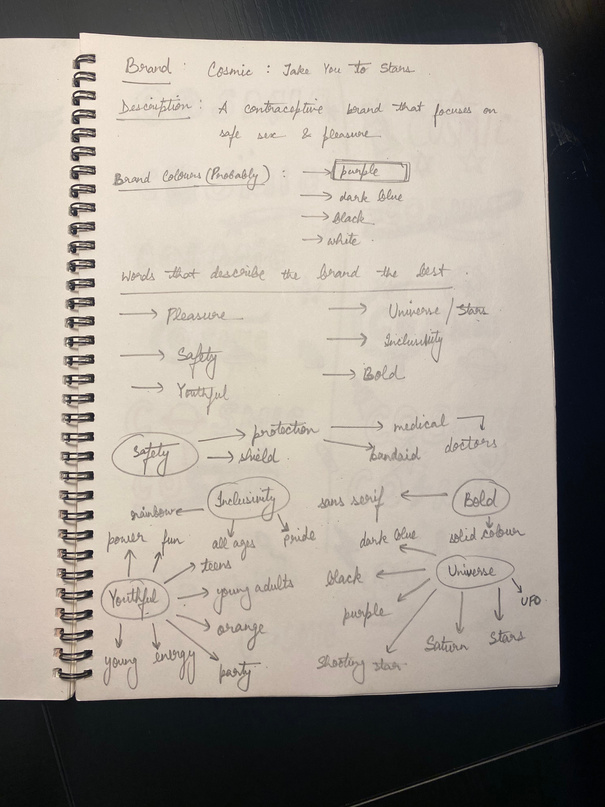 Brand : Cosmic : Take You to Stars
Description : A contraceptive brand that focuses on
safe sex & pleasure
Brand Colours (Probably) : → purple
→ dark blue
→ black
→ white
Words that describe the brand the best
→ Pleasure → Universe / Stars
→ Safety → Inclusivity
→ Youthful → Bold
Safety → protection → medical → doctors
→ shield → bandaid
Inclusivity
rainbows
all ages
pride
Bold
sans serif
solid colour
Youthful
power
fun
teens
young adults
orange
party
energy
young
Universe
dark blue
black
purple
shooting star
Saturn
Stars
UFO